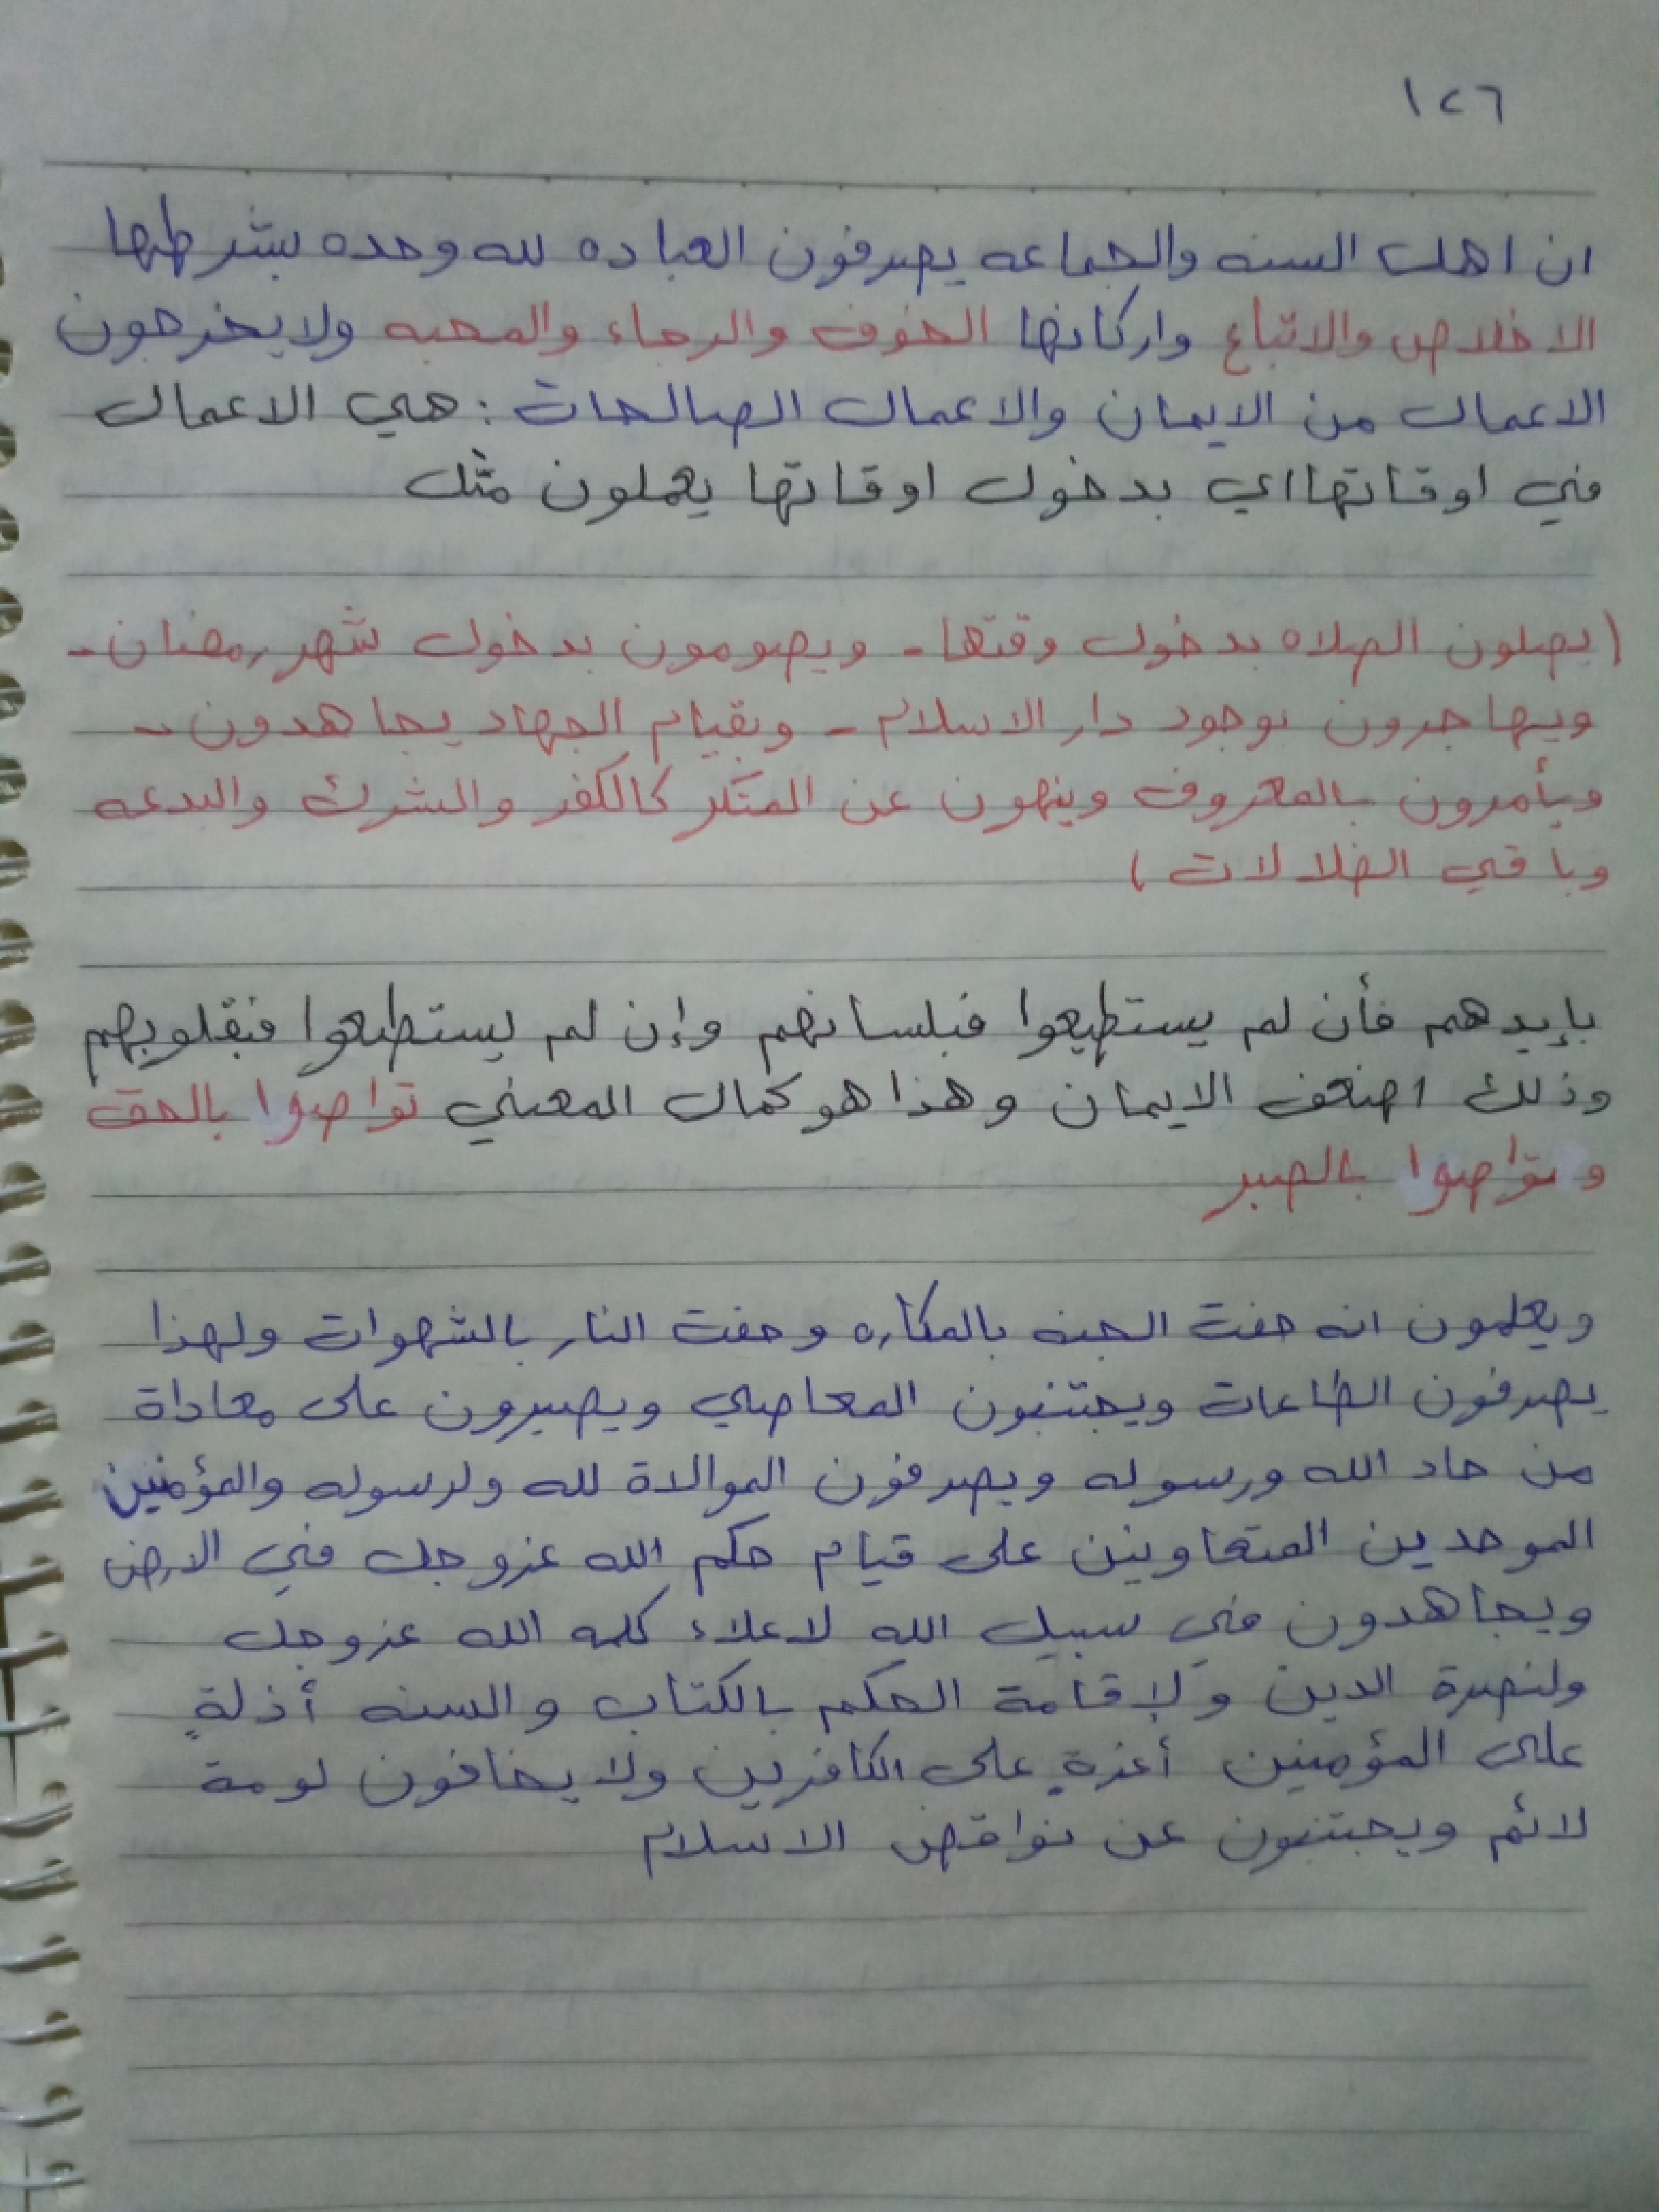 ١٢٦
ان اهل السنه والجماعه يصرفون العباده لله وحده بشرطها
الاخلاص والاتباع واركانها الخوف والرجاء والمحبه ولا يخرجون
الاعمال من الايمان والاعمال الصالحات : هي الاعمال
في اوقاتها اي بدخول اوقاتها يعملون مثل
(يصلون الصلاه بدخول وقتها - ويصومون بدخول شهر رمضان -
ويهاجرون بوجود دار الاسلام - وبقيام الجهاد يجاهدون -
ويأمرون بالمعروف وينهون عن المنكر كالكفر والشرك والبدعه
وباقي الضلالات)
بإيدهم فأن لم يستطيعوا فبلسانهم وإن لم يستطيعوا فبقلوبهم
وذلك اضعف الايمان وهذا هو كمال المعنى تواصوا بالحق
وتواصوا بالصبر
ويعلمون انه حفت الجنه بالمكاره وحفت النار بالشهوات ولهذا
يصرفون الطاعات ويجتنبون المعاصي ويصبرون على معاداة
من حاد الله ورسوله ويصرفون الموالاة لله ولرسوله والمؤمنين
الموحدين المتعاونين على قيام حكم الله عزوجل في الارض
ويجاهدون في سبيل الله لاعلاء كلمه الله عزوجل
ولنصرة الدين ولإقامة الحكم بالكتاب والسنه أذلةٍ
على المؤمنين أعزةٍ على الكافرين ولا يخافون لومة
لائم ويجتنبون عن نواقض الاسلام